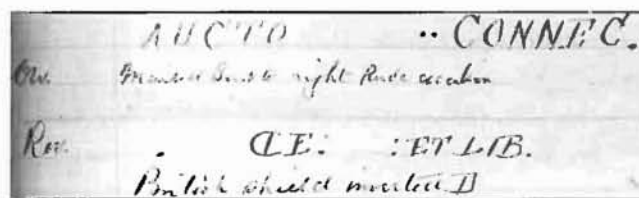 AUCTO .. CONNEC.
Obv. Mailed Bust to right Rude execution
Rev. . CE: :ET LIB.
British shield inverted D